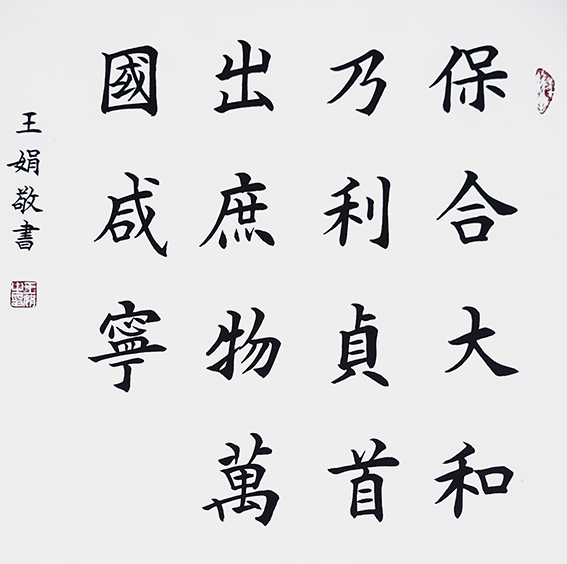 保合大和
乃利貞首
出庶物萬
國咸寧
王娟敬書